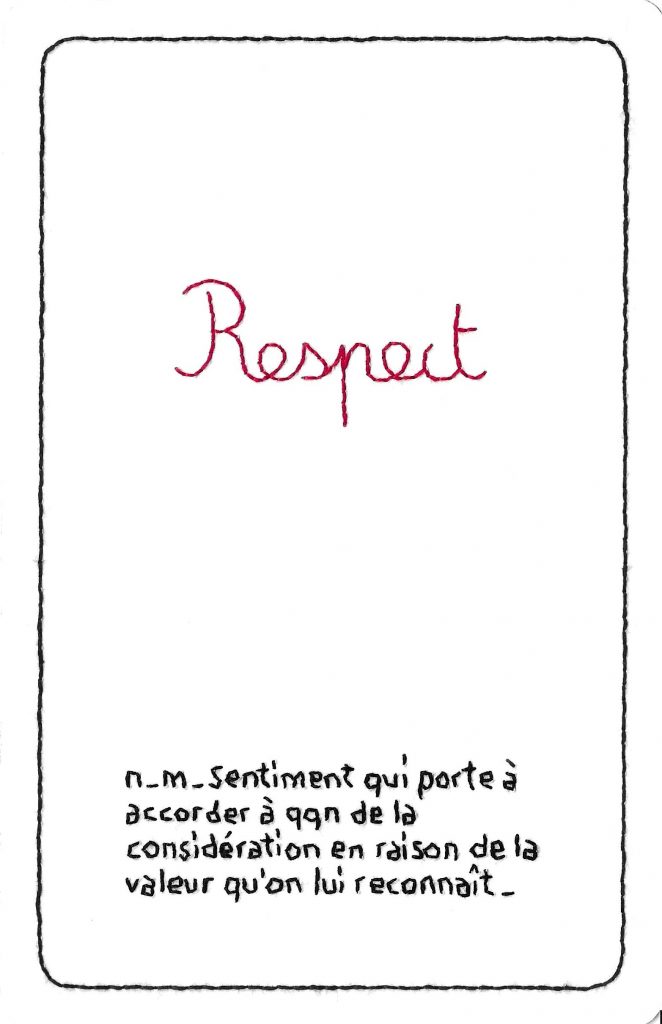 Respect
n_m_sentiment qui porte à
accorder à qqn de la
considération en raison de la
valeur qu'on lui reconnaît_